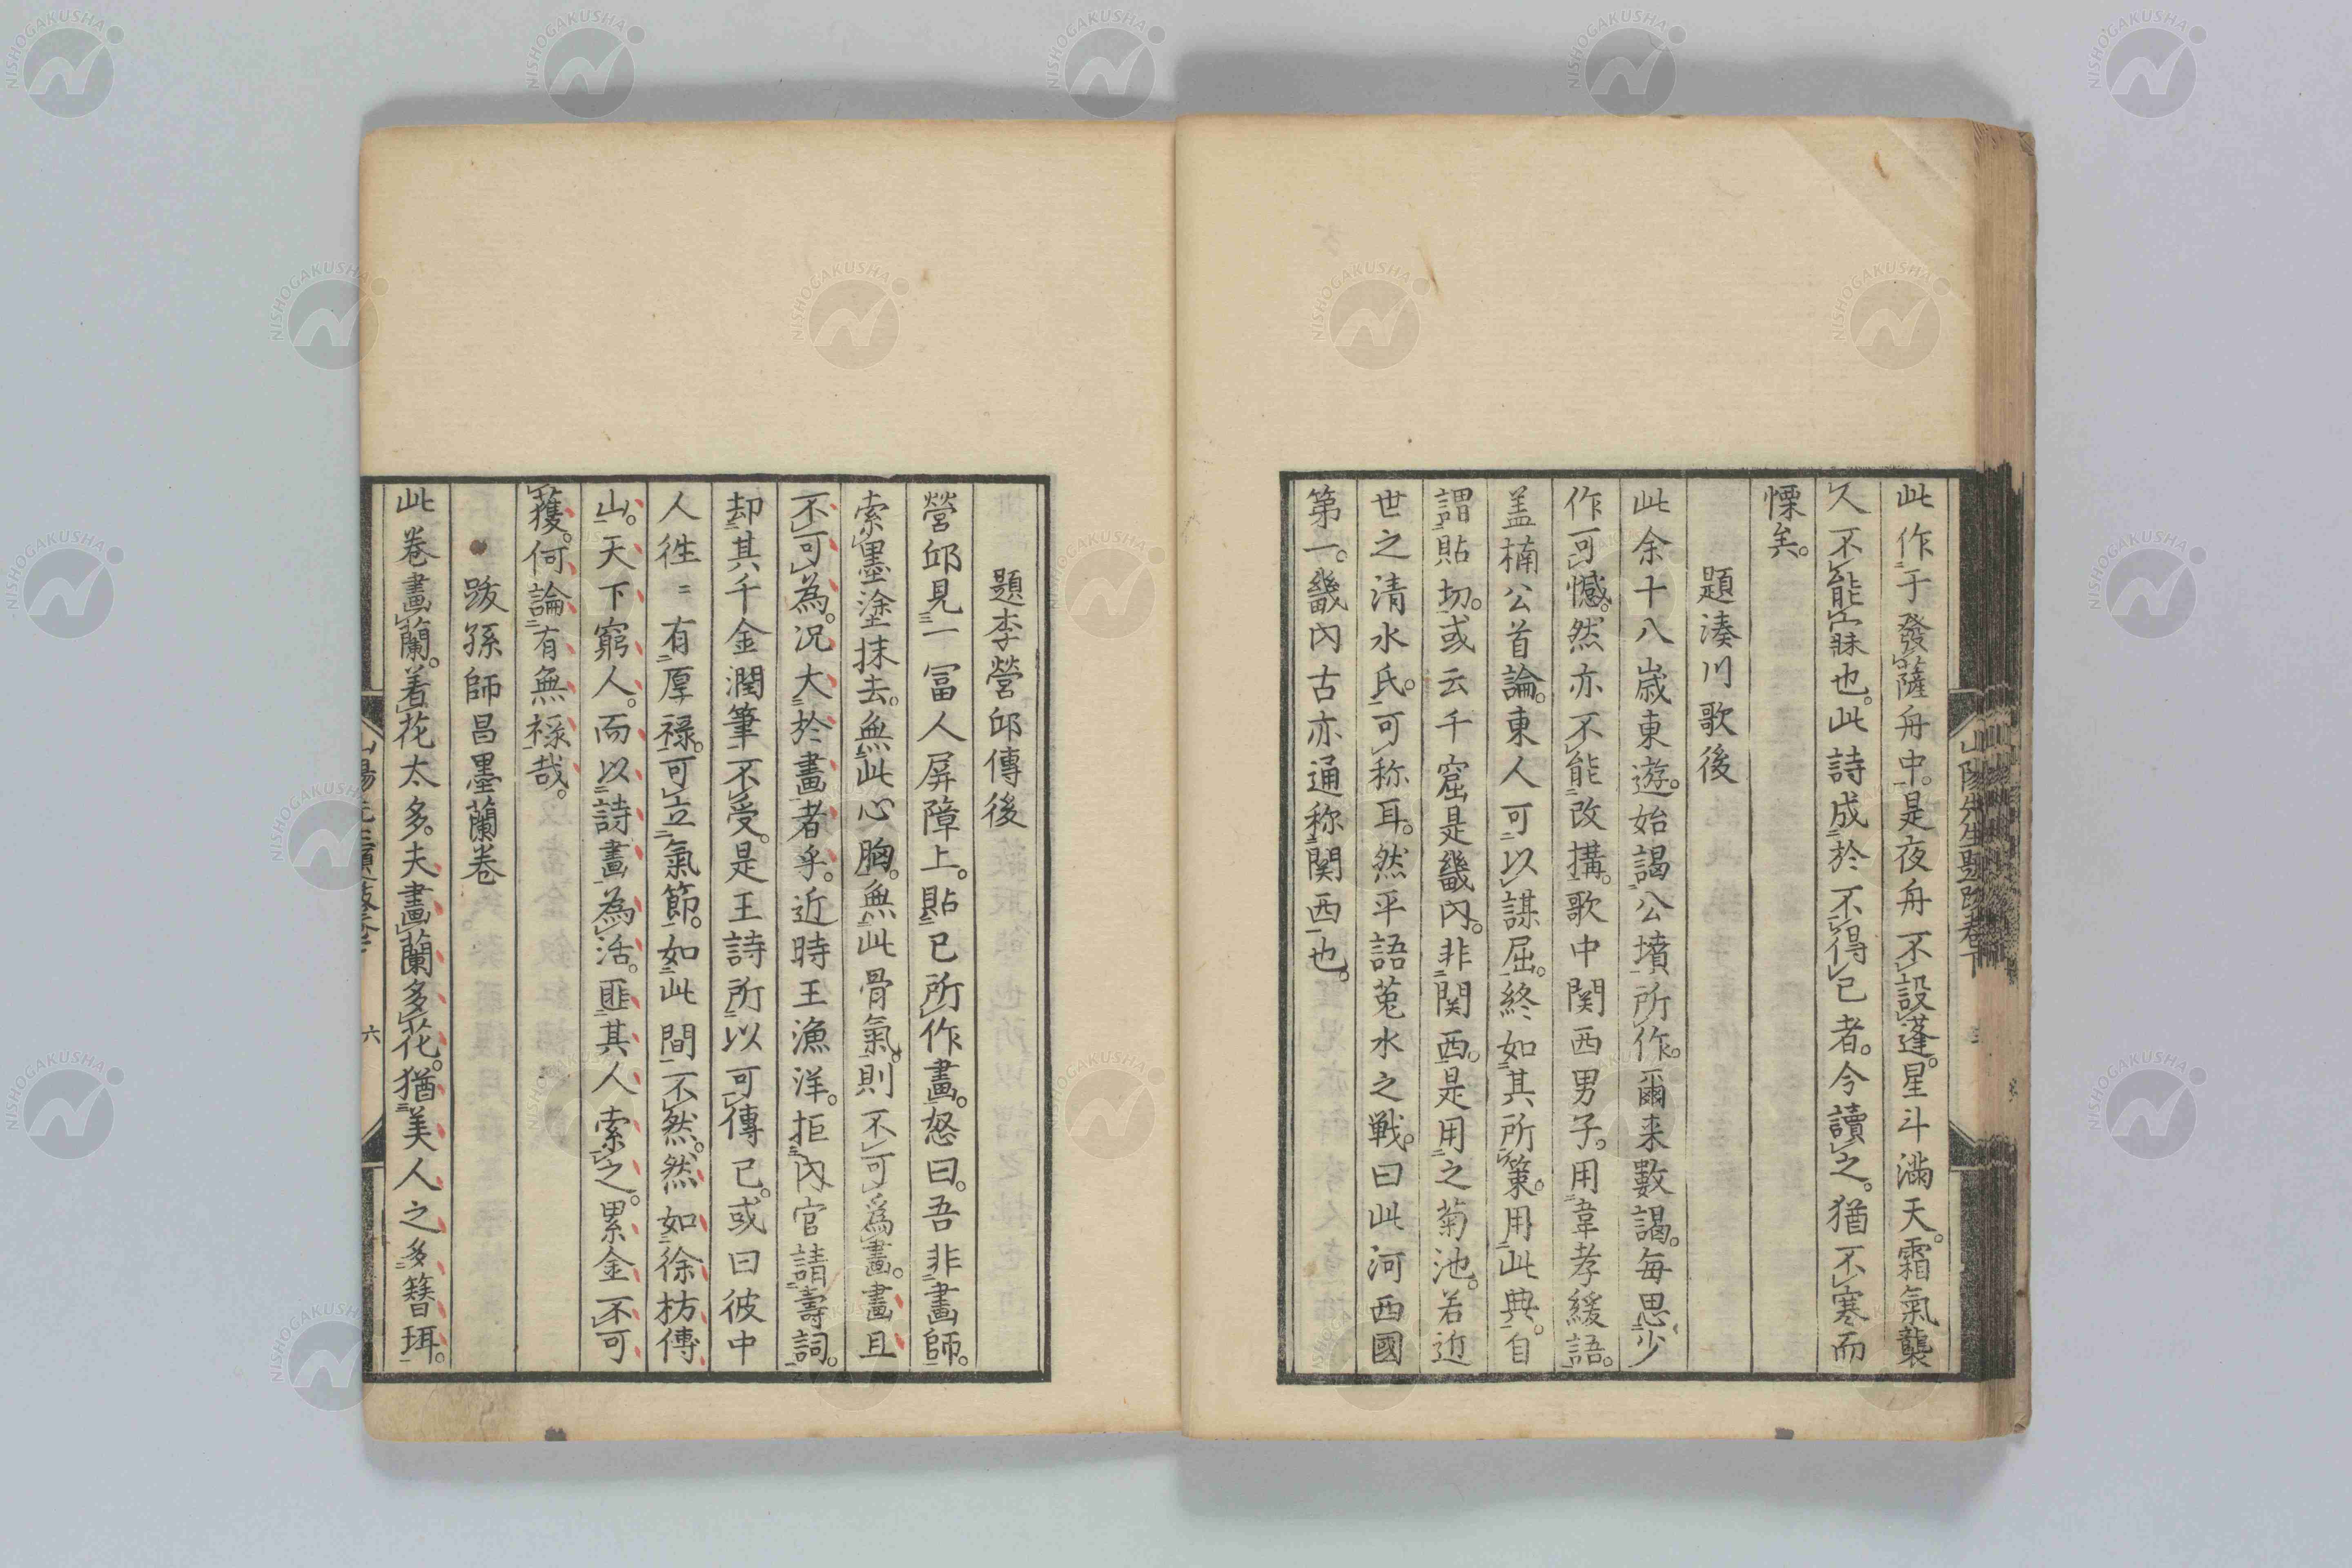 此作于發薩舟中。是夜舟不設蓬。星斗滿天。霜氣襲
人不能寐也。此詩成於不得已者。今讀之。猶不寒而
慄矣。
題湊川歌後
此余十八歳東遊。始謁公墳所作。爾来數謁。毎思少
作可憾。然亦不能改搆。歌中関西男子。用韋孝緩語。
盖楠公首論。東人可以謀屈。終如其所策。用此典。自
謂貼切。或云千窟是畿内。非関西。是用之菊池。若近
世之清水氏。可称耳。然平語莵水之戦。曰此河西國
第一。畿内古亦通称関西也。
山陽先生題跋卷下
題李營邱傳後
營邱見一冨人屏障上。貼已所作畫。怒曰。吾非畫師。
索墨塗抹去。無此心胸。無此骨氣。則不可為畫。畫且
不可為。况大於畫者乎。近時王漁洋。拒内官請壽詞。
却其千金潤筆不受。是王詩所以可傳已。或曰彼中
人徃〻有厚禄。可立氣節。如此間不然。然如徐枋傅
山。天下窮人。而以詩畫為活。匪其人索之。累金不可
獲。何論有無祿哉。
跋孫師昌墨蘭卷
此卷畫蘭。着花太多。夫畫蘭多花。猶美人之多簪珥。
六
NISHOGAKUSHA